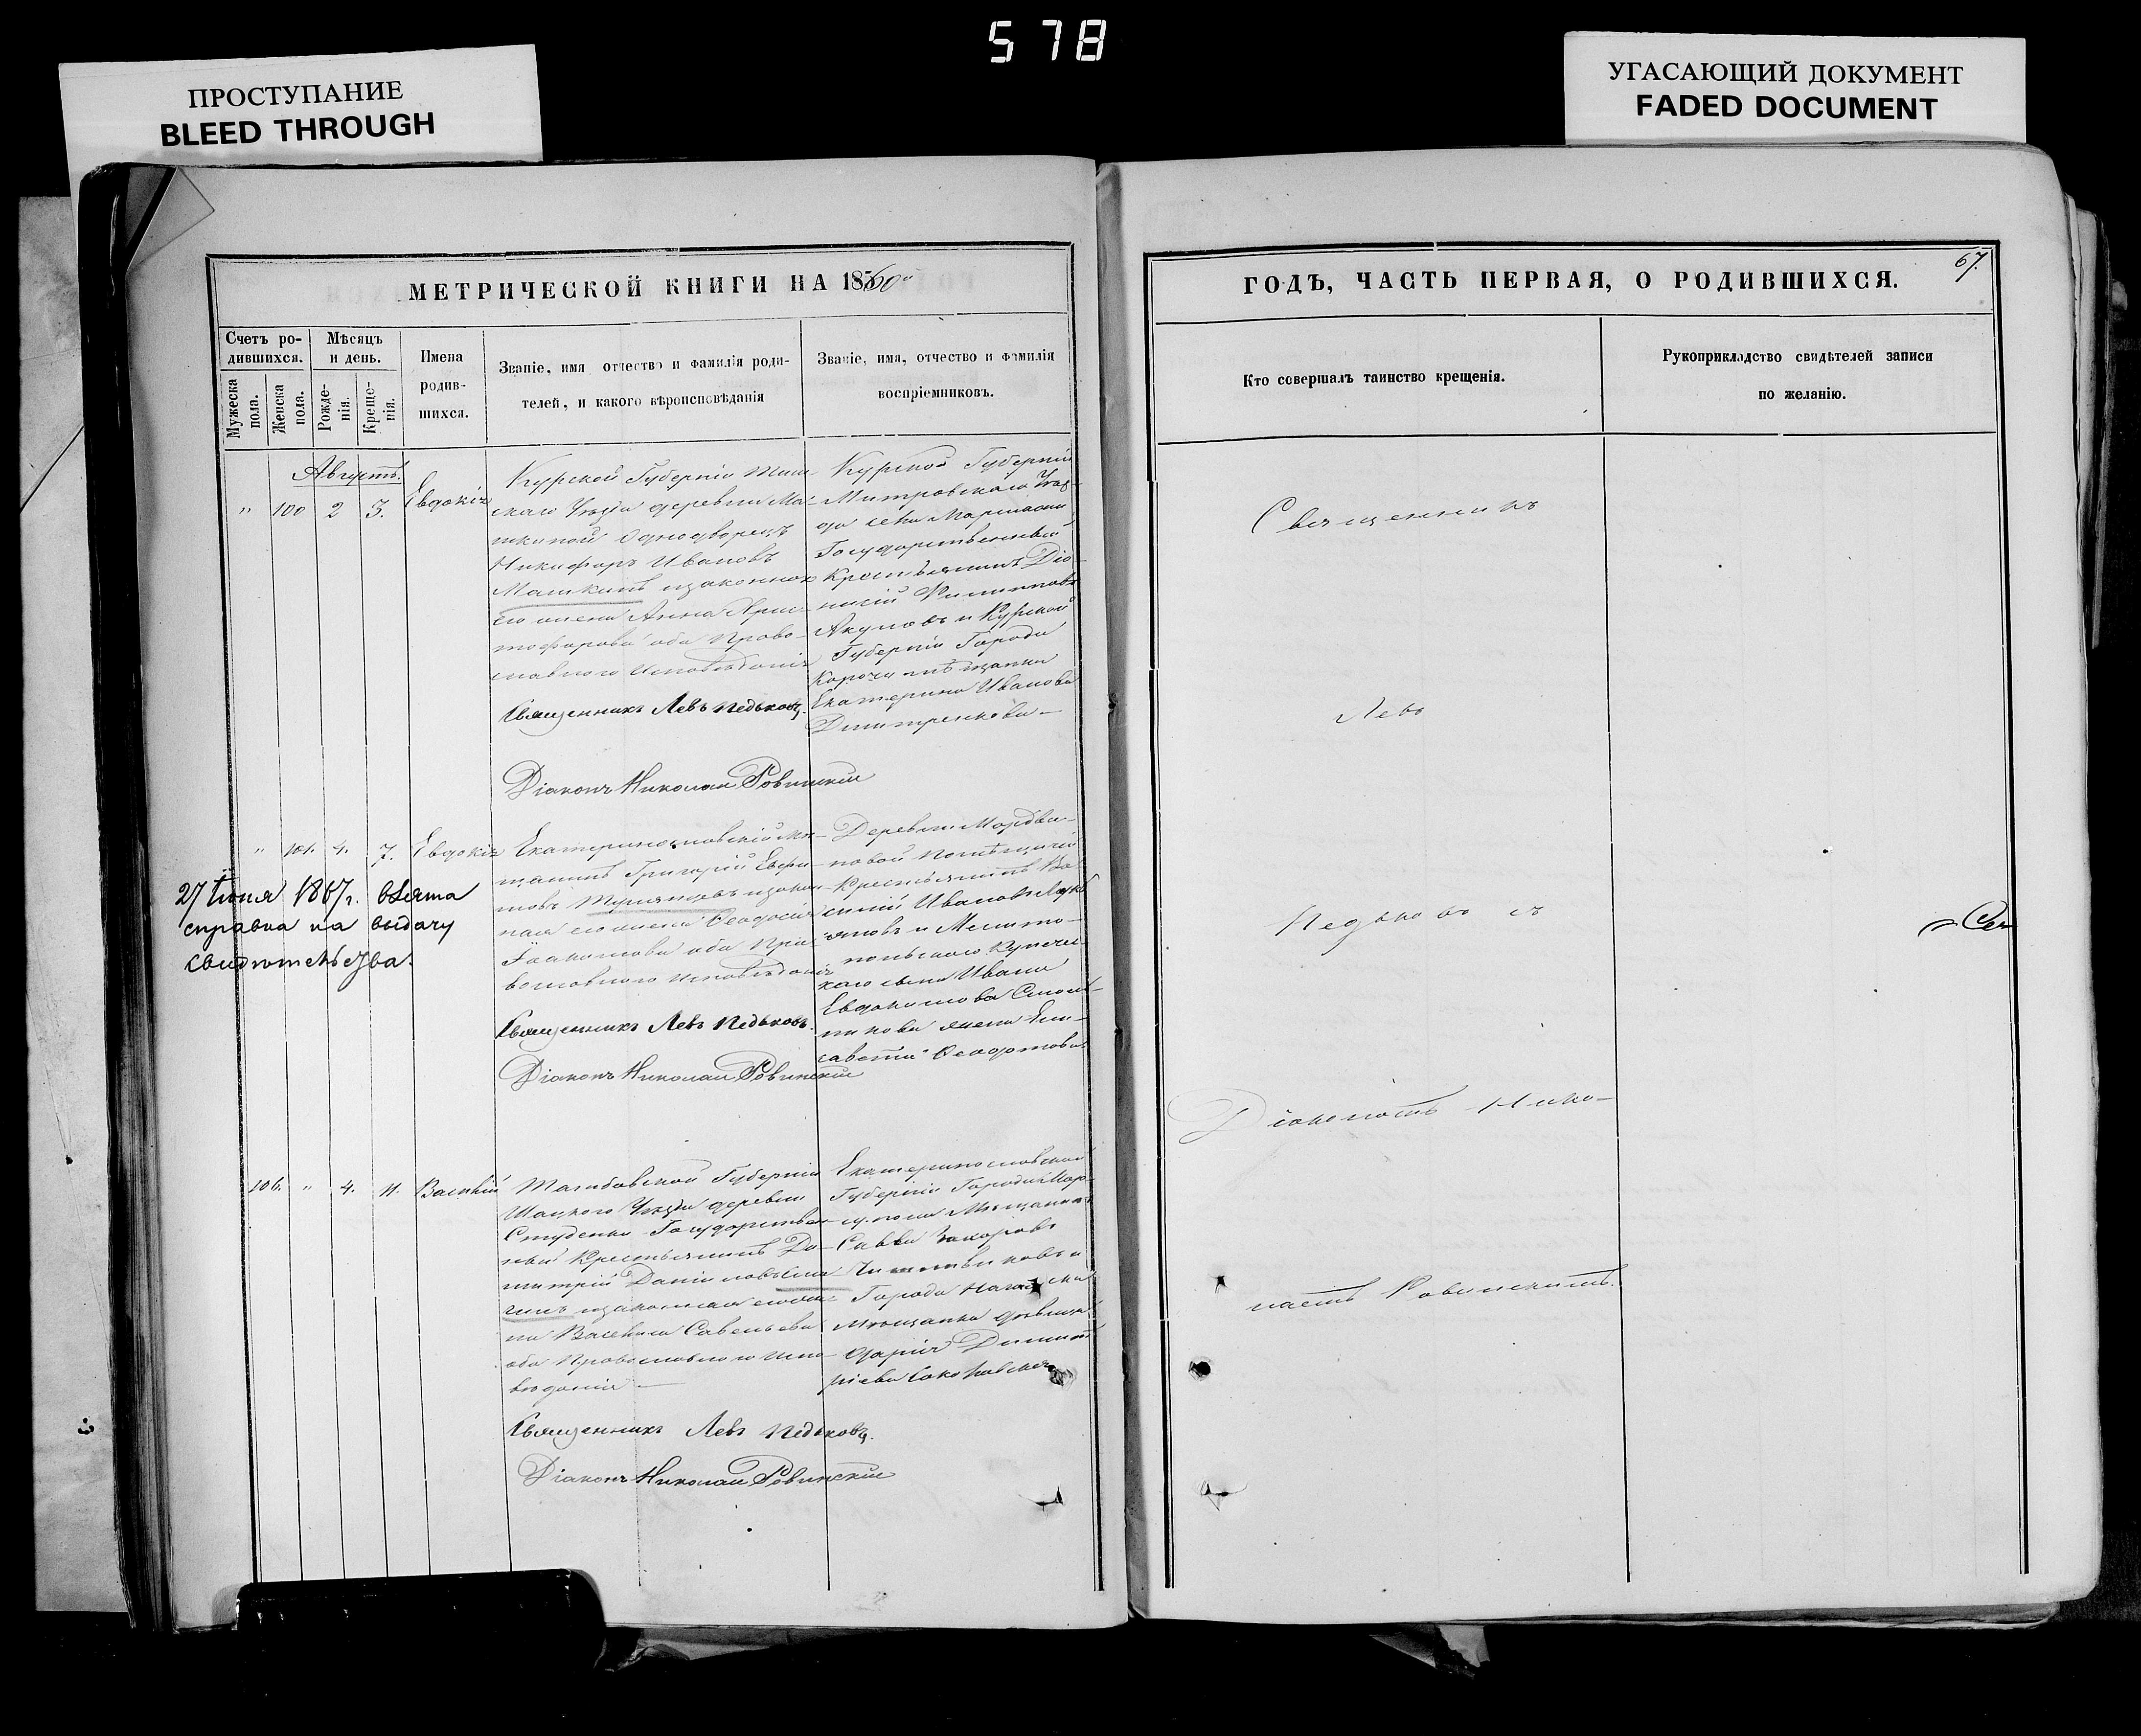 578
ПРОСТУПАНИЕ
BLEED THROUGH
УГАСАЮЩИЙ ДОКУМЕНТ
FADED DOCUMENT
МЕТРИЧЕСКОЙ КНИГИ НА 1860й
Счетъ ро-
дившихся.
Мужеска
пола.
Женска
пола.
Мѣсяцъ
и день.
Рожде-
нія.
Креще-
нія.
Имена
родив-
шихся.
Званіе, имя отчество и фамилія роди-
телей, и какого вѣроисповѣданія
Званіе, имя, отчество и фамилія
воспріемниковъ.
Августъ.
" 100 2 3. Евдокія
Курской Губерніи
скаго Уѣзда деревни Ма-
шкиной Однодворецъ
Никифоръ Ивановъ
Машкинъ изаконная
его жена Анна Хрис-
тофорова оба Право-
славного Исповѣданія
Священникъ Левъ Недьковъ.
Діаконъ Николай Ровинскій
Курской Губерніи
Митровскаго Уѣз-
да села
Государственный
Крестьянинъ Діо-
нисій Филипповъ
Акуловъ и Курской
Губерніи Города
Корочи мѣщанка
Екатерина Иванова
Дмитренкова
" 101. 4. 7. Евдокія
27 Іюня 1867г. взята
справка на выдачу
свидѣтельства.
Екатеринославскій мѣ-
щанинъ Григорій Ефи-
мовъ изакон-
ная его жена Ѳеодосія
Іоакимова оба Пра-
вославного Исповѣданія
Священникъ Левъ Недьковъ.
Діаконъ Николай Ровинскій
Деревни Мордви-
новой помѣщичій
Крестьянинъ Ва-
силій Ивановъ
и Мелито-
польского Купечес-
каго сына Ивана
Евдокимова
жена Ели-
савета
106. " 4. 11. Василій
Тамбовской Губерніи
Шацкого Уѣзда деревни
Студенки Государствен-
ный Крестьянинъ Ди-
митрій Даніиловъ
изаконная его же-
на Василиса Савельева
оба Православного Испо-
вѣданія
Священникъ Левъ Недьковъ.
Діаконъ Николай Ровинскій
Екатеринославской
Губерніи Города Мар-
іуполя Мѣщанинъ
Савва Захаровъ
и
Города Ногайска
Мѣщанка дѣвица
Дарія Димит-
ріева
67.
ГОДЪ, ЧАСТЬ ПЕРВАЯ, О РОДИВШИХСЯ.
Кто совершалъ таинство крещенія.
Рукоприкладство свидѣтелей записи
по желанію.
Священникъ
Левъ
Недьковъ съ
Діакономъ Нико-
лаемъ Ровинскимъ.